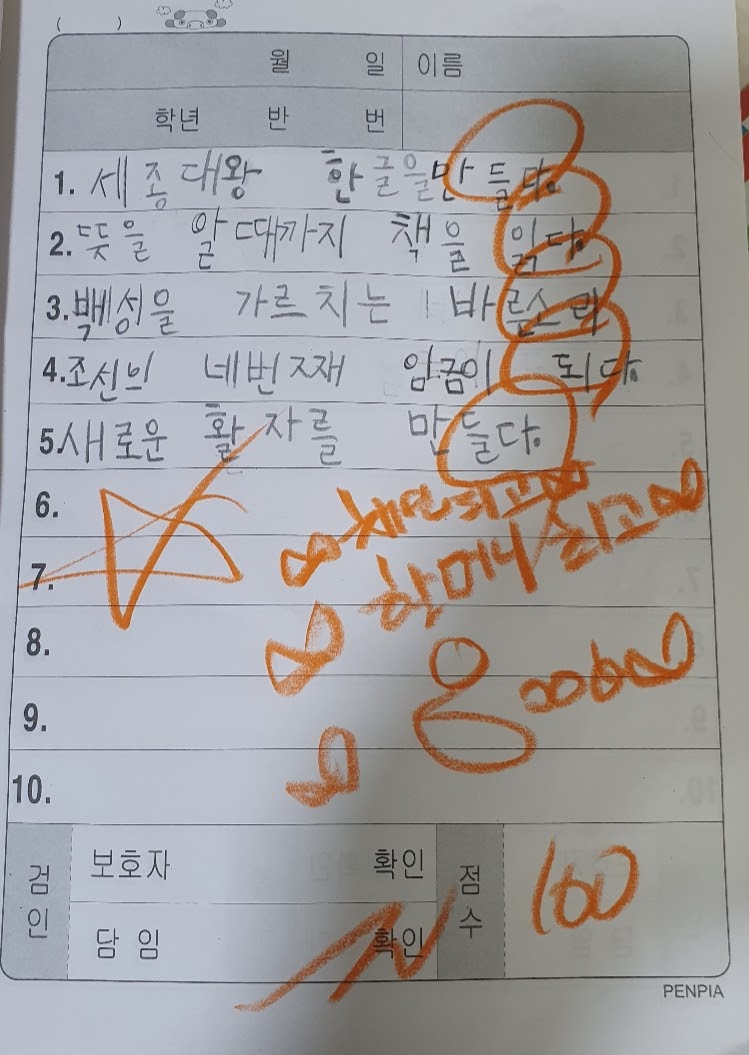 ( )
월 일 이름
학년 반 번
1. 세종대왕 한글을만들다.
2. 뜻을 알때까지 책을 읽다.
3. 백성을 가르치는 바른소리
4. 조선의 네번째 임금이 되다.
5. 새로운 활자를 만들다.
6.
최고
7.
할머니 최고
8.
9.
10.
검인 보호자 확인 점수 100
담임 확인
PENPIA